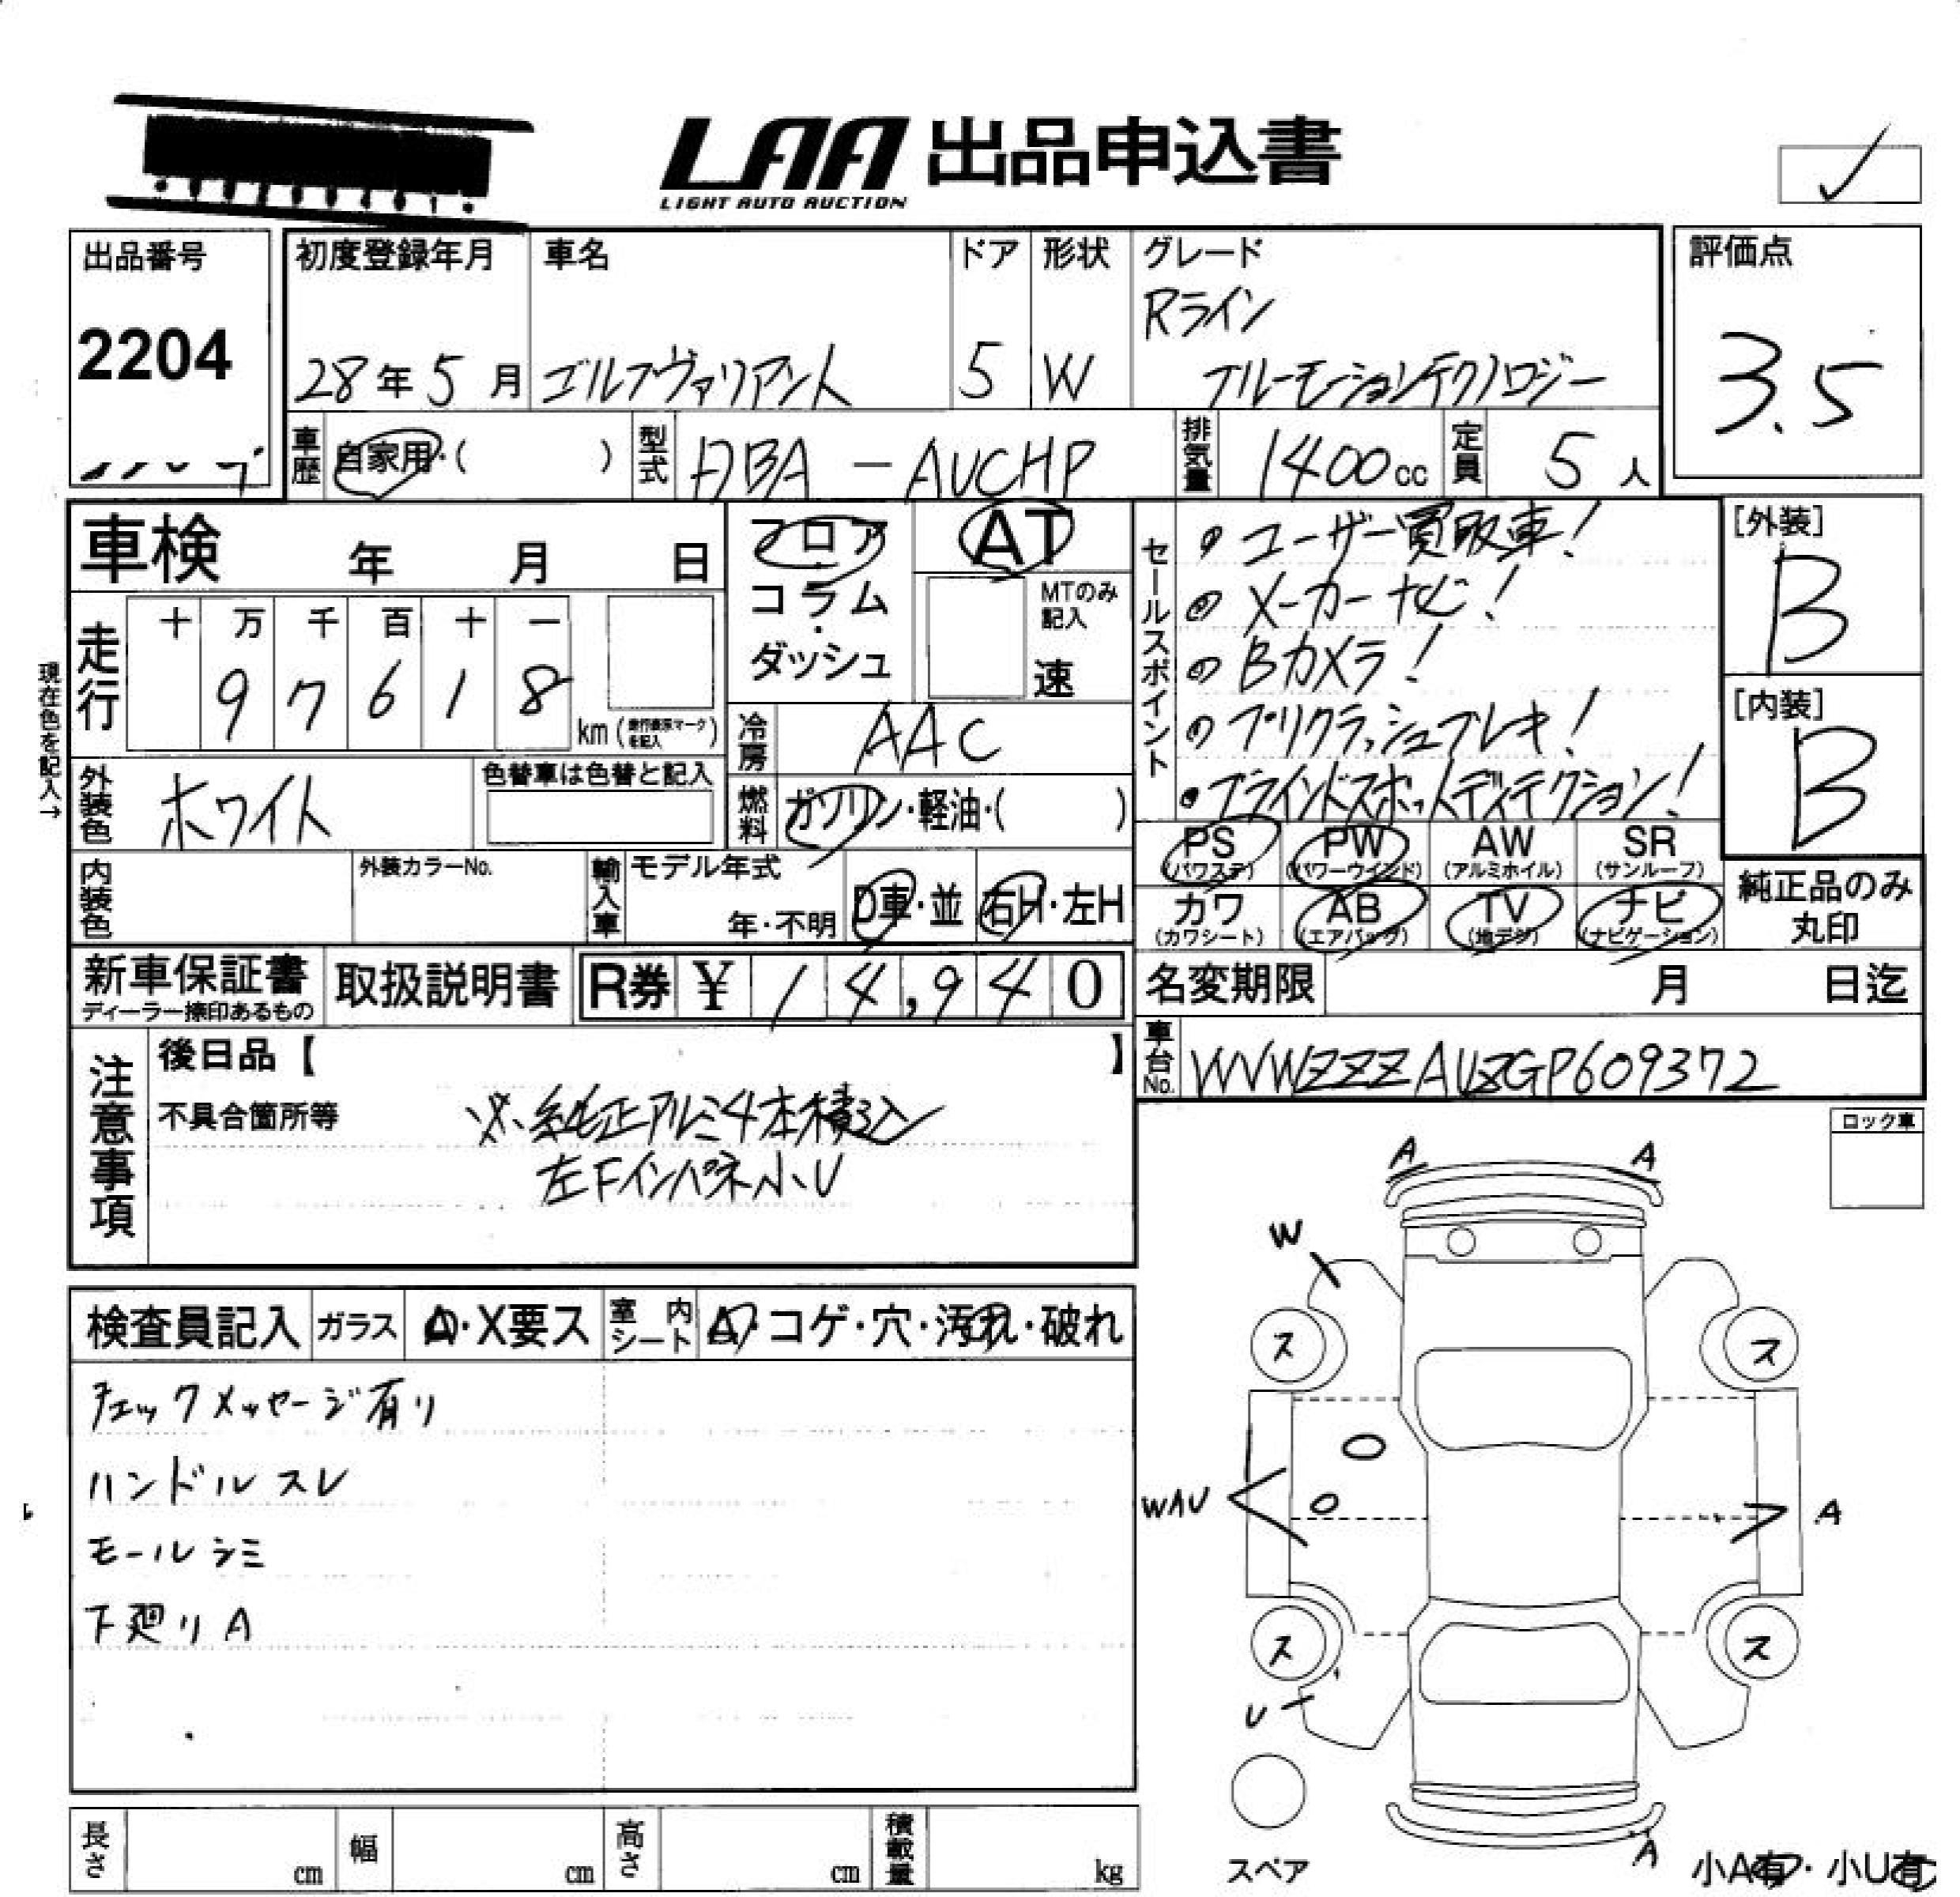 LAA 出品申込書
LIGHT AUTO AUCTION
出品番号
2204
初度登録年月
28年5月
車名
ゴルフヴァリアント
ドア
5
形状
W
グレード
Rライン
ブルーモーションテクノロジー
評価点
3.5
車歴
自家用・( )
型式
DBA - AUCHP
排気量
1400cc
定員
5人
車検 年 月 日
フロア
コラム
・
ダッシュ
AT
MTのみ
記入
速
現在色を記入→
走行
十 万 千 百 十 一
9 7 6 1 8
km (走行表示マークを記入)
冷房
AAC
外装色
ホワイト
色替車は色替と記入
燃料
ガソリン・軽油・( )
内装色
外装カラーNo.
輸入車
モデル年式
年・不明
D車・並
右H・左H
セールスポイント
ユーザー買取車!
メーカーナビ!
Bカメラ!
プリクラッシュブレーキ!
ブラインドスポットディテクション!
[外装]
B
[内装]
B
PS
(パワステ)
PW
(パワーウインド)
AW
(アルミホイル)
SR
(サンルーフ)
カワ
(カワシート)
AB
(エアバッグ)
TV
(地デジ)
ナビ
(ナビゲーション)
純正品のみ
丸印
新車保証書
ディーラー捺印あるもの
取扱説明書
R券 ¥ 14,940
名変期限 月 日迄
車台No.
WVWZZZAUZGP609372
注意事項
後日品【 】
不具合箇所等
※純正アルミ4本積込
左Fインパネ小U
ロック車
検査員記入
ガラス
A・X要ス
室内
シート
A・コゲ・穴・汚れ・破れ
チェックメッセージ有り
ハンドルスレ
モールシミ
下廻りA
A A
W
ス ス
WAU
A
ス ス
U
スペア
A
小A有・小U有
長さ cm
幅 cm
高さ cm
積載量 kg